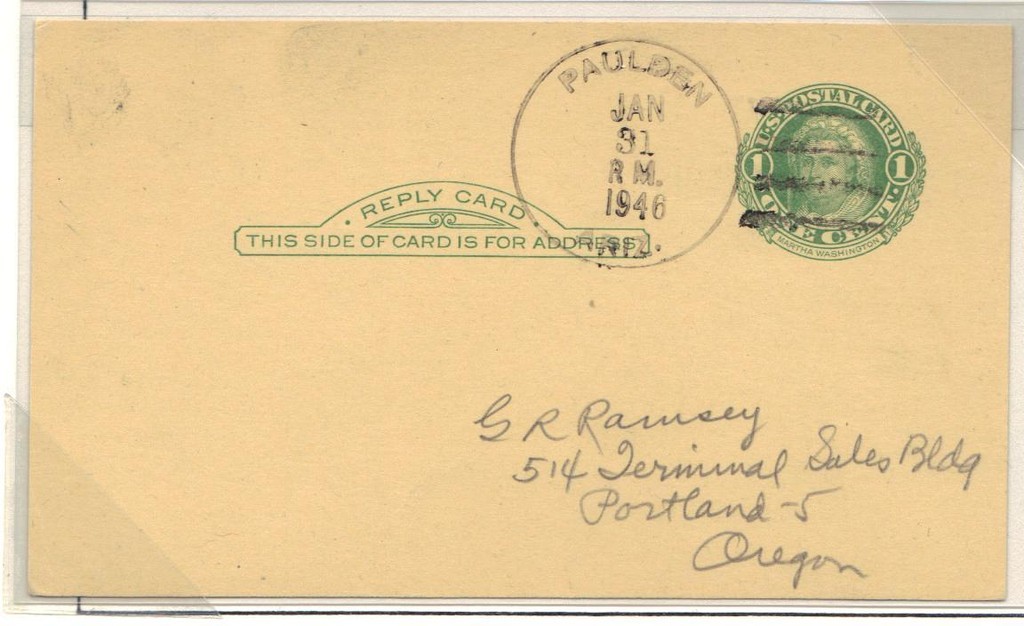 PAULDEN
JAN
31
P.M.
1946
ARIZ.
U.S. POSTAL CARD
1 1
ONE CENT
MARTHA WASHINGTON
REPLY CARD
THIS SIDE OF CARD IS FOR ADDRESS
G R Ramsey
514 Terminal Sales Bldg
Portland-5
Oregon